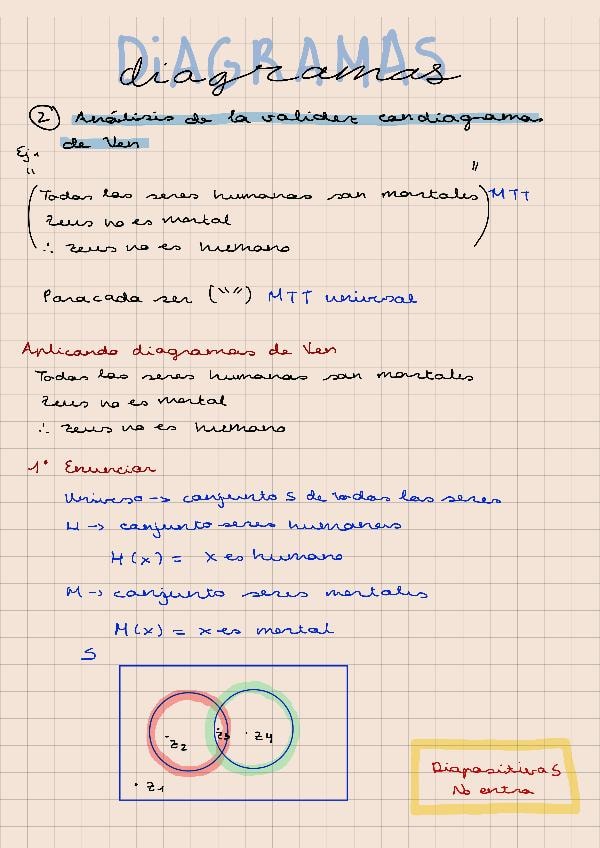 DiAGRAMAS
diagramas
2 Análisis de la validez con diagramas
de Ven
Ej 1
" Todos los seres humanos son mortales " MTT
Zeus no es mortal
∴ Zeus no es humano
Para cada ser ("") MTT universal
Aplicando diagramas de Ven
Todos los seres humanos son mortales
Zeus no es mortal
∴ Zeus no es humano
1° Enunciar
Universo -> conjunto S de todos los seres
H -> conjunto seres humanos
H(x) = x es humano
M -> conjunto seres mortales
M(x) = x es mortal
S
Z2 Z3 Z4
Z1
Diapositiva S
No entra